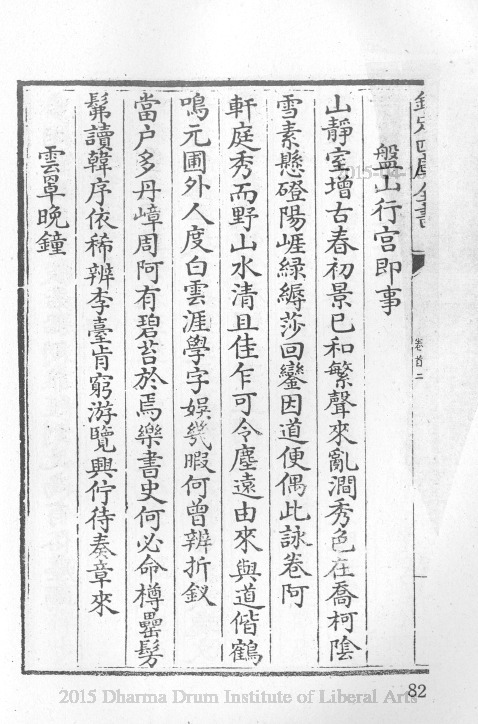 欽定四庫全書
卷首二
盤山行宮即事
山靜室增古春初景已和繁聲來亂澗秀色在喬柯陰
雪素懸磴陽崕緑縟莎回鑾因道便偶此詠卷阿
軒庭秀而野山水清且佳乍可令塵遠由來與道偕鶴
鳴元圃外人度白雲涯學字娛㡬暇何曽辨折釵
當户多丹嶂周阿有碧苔於焉樂書史何必命樽罍髣
髴讀韓序依稀辨李臺肯窮游覽興佇待奏章來
雲罩晚鐘
82
2015 Dharma Drum Institute of Liberal Arts